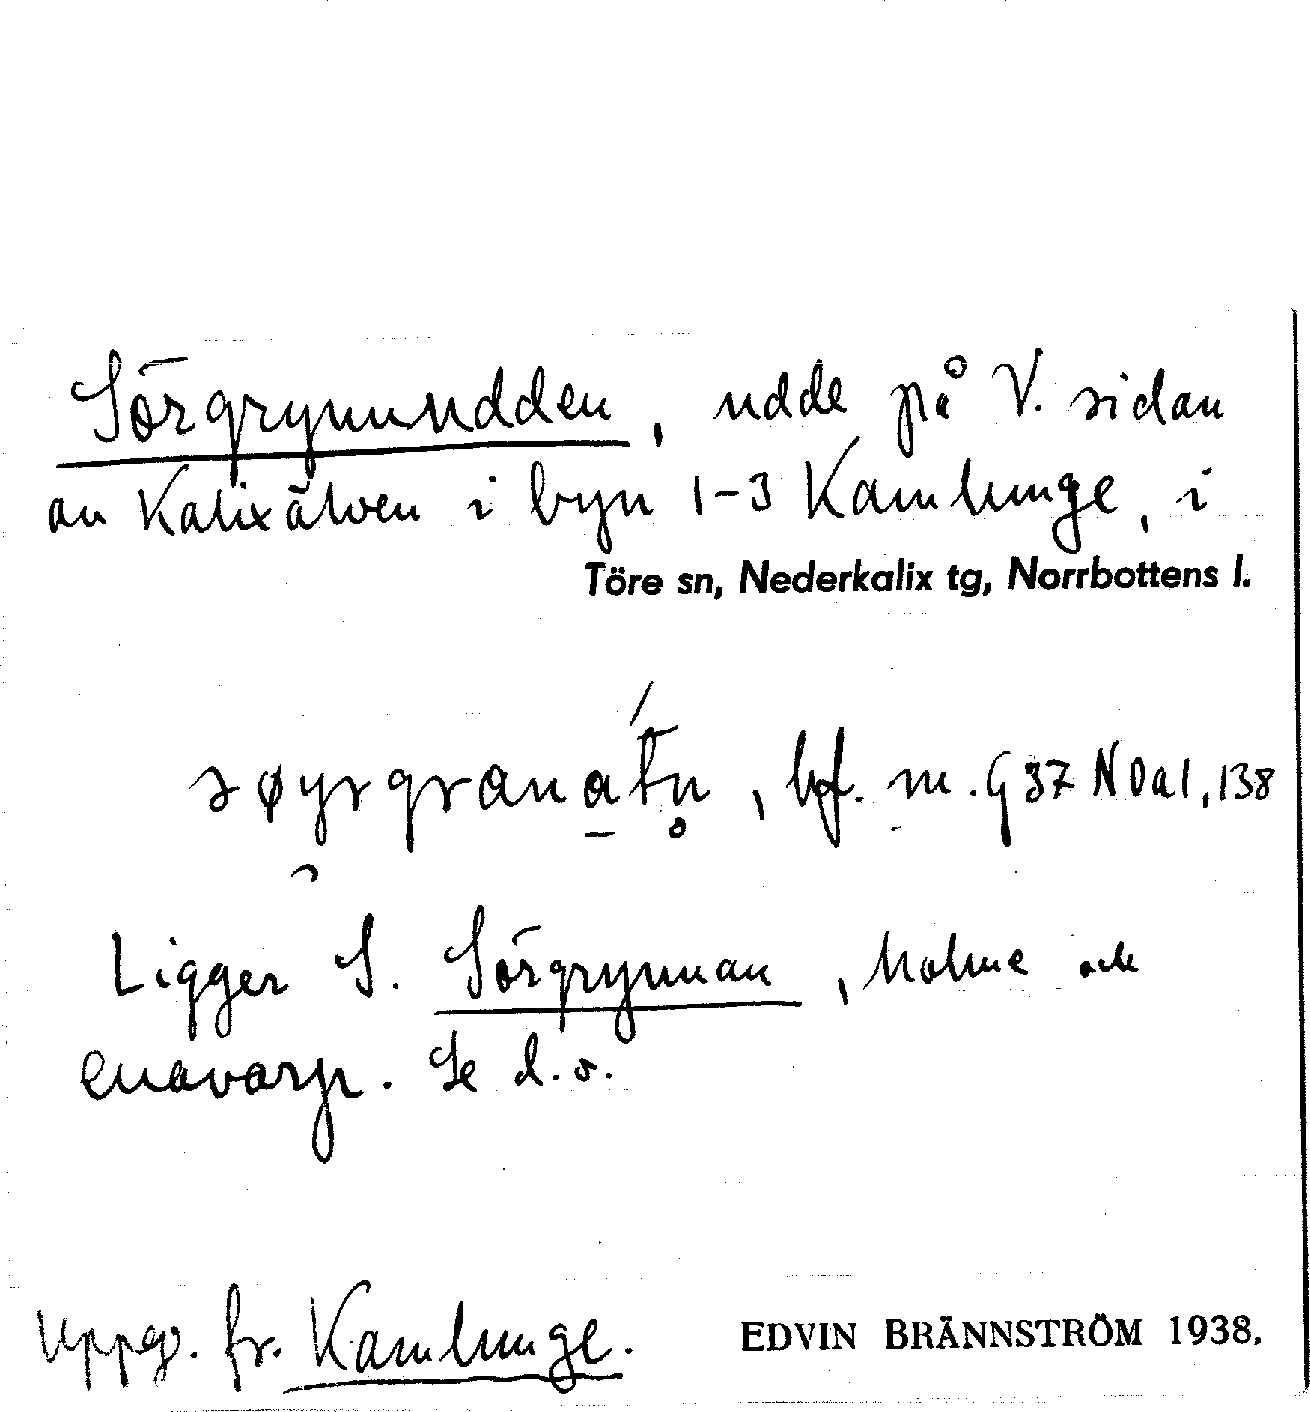 Sörgrynnudden, udde på V. sidan
av Kalixälven i byn 1-3 Kamlunge, i
Töre sn, Nederkalix tg, Norrbottens l.
bf. m. G 37 N Dal, 138
Ligger S. Sörgrynnan, holme och
enavarp. Se d. o.
Uppg. fr. Kamlunge.
EDVIN BRÄNNSTRÖM 1938.